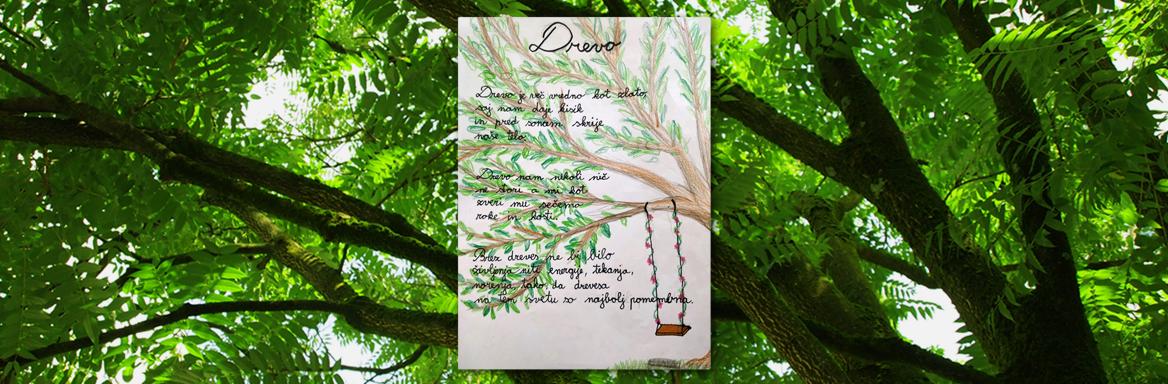 Drevo
Drevo je več vredno kot zlato,
saj nam daje kisik
in pred soncem skrije
naše telo.
Drevo nam nikoli nič
ne stori a mi kot
zveri mu sečemo
roke in kosti.
Brez dreves ne bi bilo
življenja niti energije, tekanja,
norenja, tako, da drevesa
na tem svetu so najbolj pomembna.